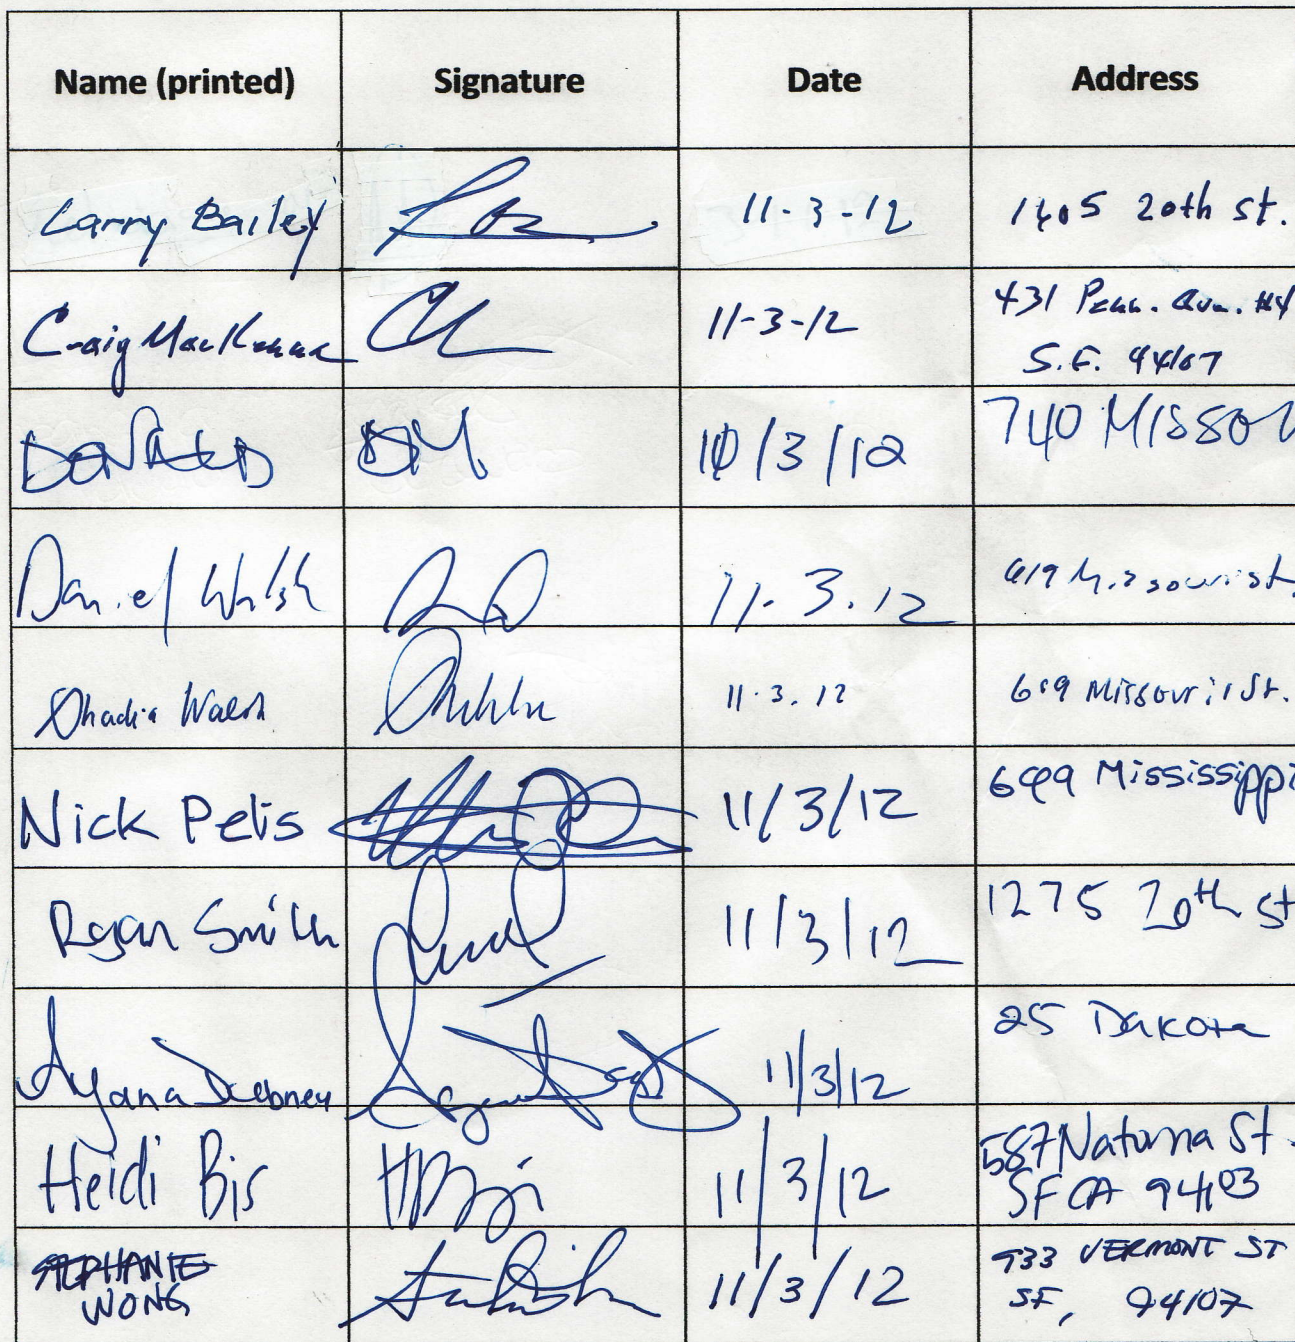 Name (printed) Signature Date Address
Larry Bailey 11-3-12 1405 20th St.
Craig MacKenna 11-3-12 431 Penn. Ave. #4
S.F. 94107
DONALD DM 10/3/12 740 MISSOU
Daniel Walsh 11.3.12 619 Missouri st.
Walsh 11.3.12 619 Missouri St.
Nick Petis 11/3/12 699 Mississippi
Ryan Smith 11/3/12 1275 20th St
Ayana Debney 11/3/12 25 Dakota
Heidi Bjs 11/3/12 587 Natoma St.
SF CA 94103
STEPHANIE
WONG 11/3/12 933 VERMONT ST
SF, 94107